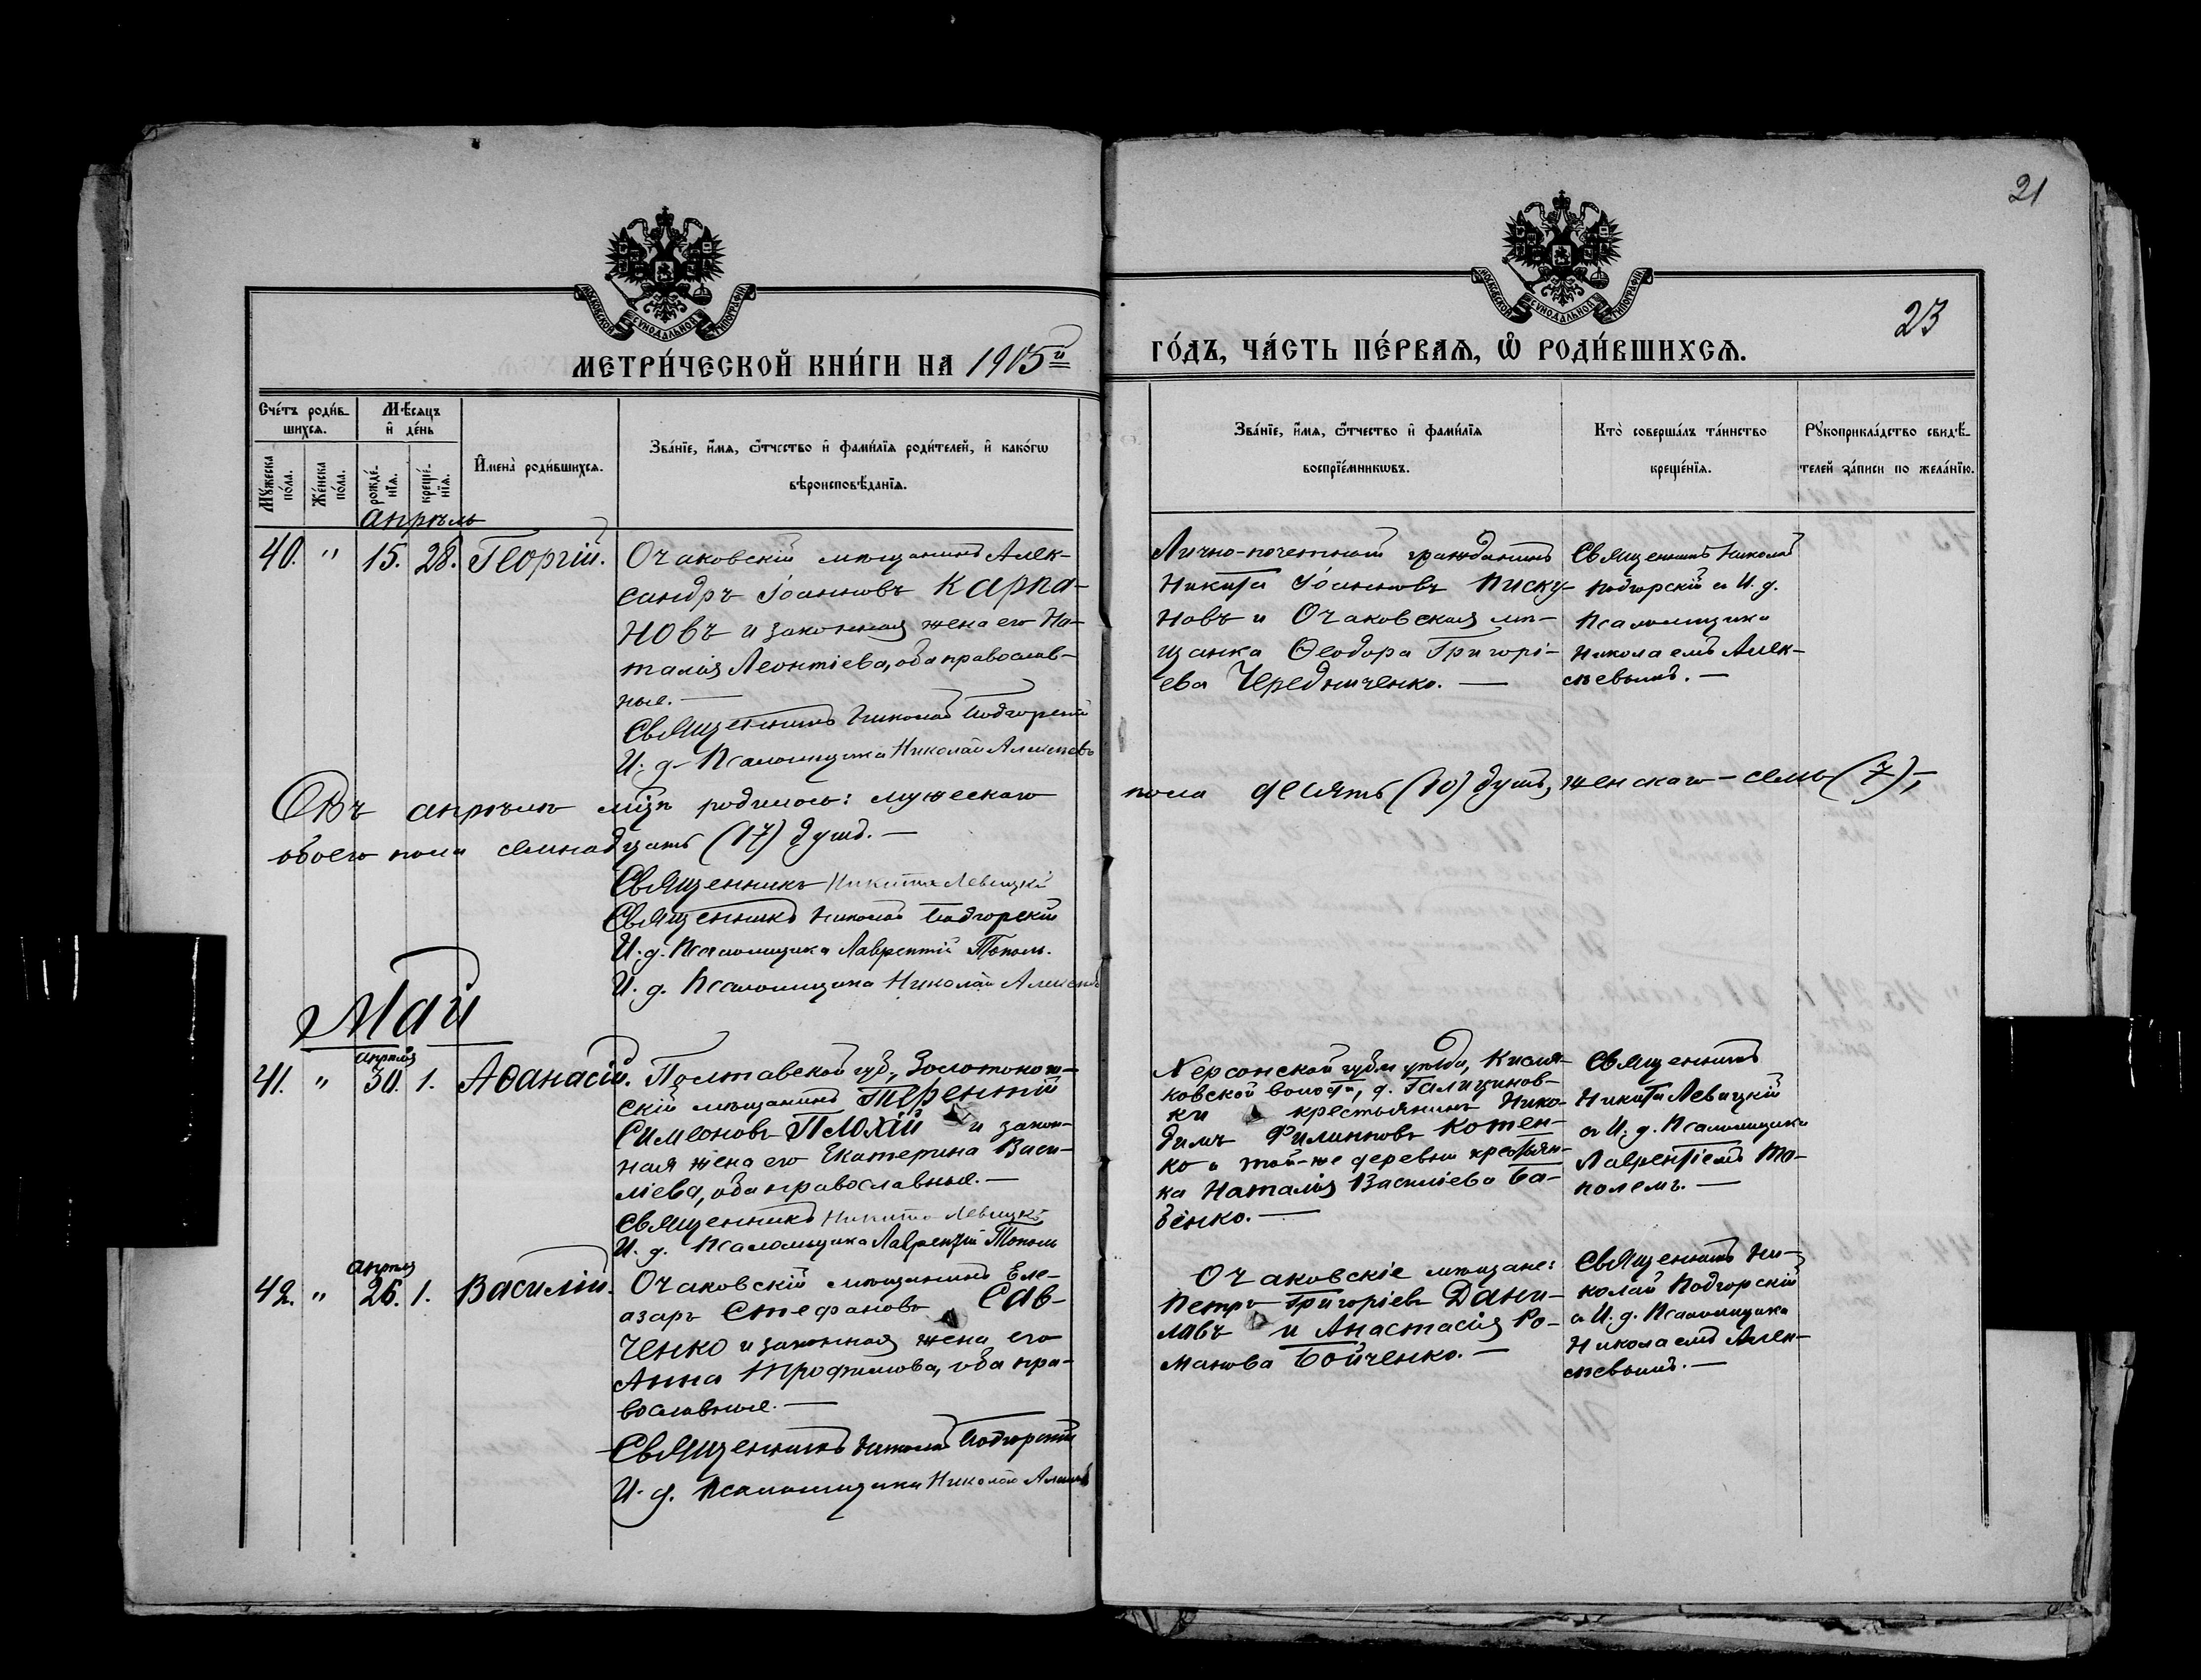 21
МОСКОВСКОЙ СУНОДАЛЬНОЙ ТИПОГРАФІИ
МОСКОВСКОЙ СУНОДАЛЬНОЙ ТИПОГРАФІИ
23
МЕТРИ́ЧЕСКОЙ КНИ́ГИ НА 1905й
ГО́ДЪ, ЧА́СТЬ ПЕ́РВАѦ, Ѡ҆ РОДИ́ВШИХСѦ.
Сче́тъ роди́в-
шихсѧ.
Мѣ́сѧцъ
и҆ де́нь
Мꙋ́жеска
по́ла.
Же́нска
по́ла.
рожде́-
нїѧ.
креще́-
нїѧ.
И҆мена̀ роди́вшихсѧ.
Зва́нїе, и҆́мѧ, ѻ҆́тчество и҆ фами́лїѧ роди́телей, и҆ како́гѡ
вѣроисповѣ́данїѧ.
Зва́нїе, и҆́мѧ, ѻ҆́тчество и҆ фами́лїѧ
воспрїе́мникѡвъ.
Кто̀ соверша́лъ та́инство
креще́нїѧ.
Рꙋкоприкла́дство свидѣ́-
телей за́писи по жела́нїю.
апрѣль
40. " 15. 28. Георгій.
Очаковскій мѣщанинъ Алек-
сандръ Іоанновъ Карпа-
новъ и законная жена его На-
талія Леонтіева, оба православ-
ные.—
Священникъ Николай Подгорскій
И. д. Псаломщика Николай Алексѣевъ
Лично-почетный гражданинъ
Никита Іоанновъ Писку-
новъ и Очаковская мѣ-
щанка Ѳеодора Григорі-
ева Чередниченко. —
Священникъ Николай
Подгорскій съ И. д.
Псаломщика
Николаемъ Алек-
сѣевымъ. —
Въ апрѣлѣ мцѣ родилось: мужескаго пола десять (10) душъ, женскаго — семь (7),
обоего пола семнадцать (17) душъ. —
Священникъ Никита Левицкій
Священникъ Николай Подгорскій
И. д. Псаломщика Лаврентій Тополь.
И. д. Псаломщика Николай Алексѣевъ
Май
апрѣля
41. " 30. 1. Аѳанасій.
Полтавской губ., Золотонош-
скій мѣщанинъ Терентій
Симеоновъ Плохій и закон-
ная жена его Екатерина Васи-
ліева, оба православные. —
Священникъ Никита Левицкій
И. д. Псаломщика Лаврентій Тополь
Херсонской губ. и уѣзда, Кисля-
ковской волости, д. Галициновки
крестьянинъ Нико-
димъ Филипповъ Котен-
ко и той-же деревни крестьян-
ка Наталія Василіева Ба-
бенко. —
Священникъ
Никита Левицкій
съ И. д. Псаломщика
Лаврентіемъ То-
полемъ. —
апрѣля
42. " 26. 1. Василій.
Очаковскій мѣщанинъ Еле-
азаръ Стефановъ Сав-
ченко и законная жена его
Анна Трофимова, оба пра-
вославные. —
Священникъ Николай Подгорскій
И. д. Псаломщика Николай Алексѣевъ
Очаковскіе мѣщане:
Петръ Григоріевъ Дани-
ловъ и Анастасія Ро-
манова Бойченко. —
Священникъ Ни-
колай Подгорскій
съ И. д. Псаломщика
Николаемъ Алек-
сѣевымъ. —